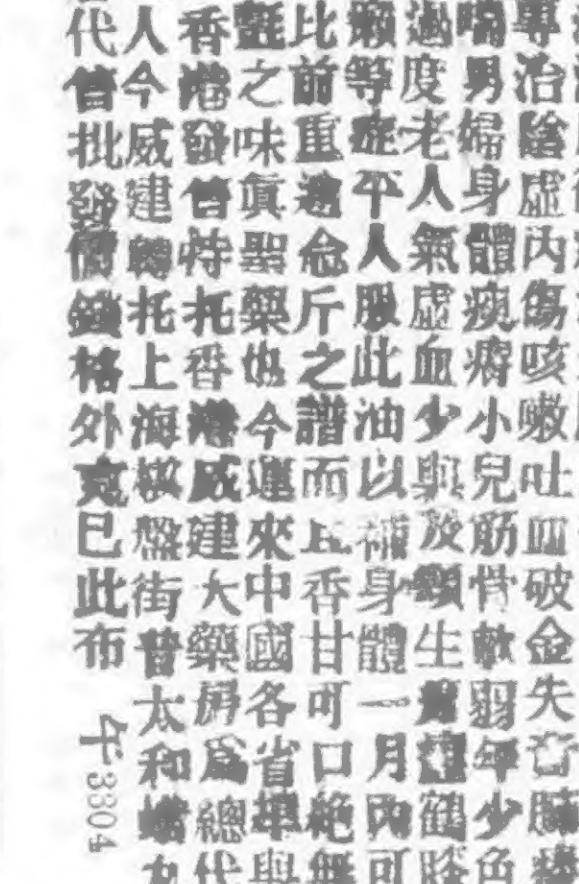 專治陰虛內傷咳嗽吐血破金失音
男婦身體瘦瘠小兒筋骨軟弱年少色
過度老人氣虛血少與及
癩等症平人服此油以補身體一月內可
比前重過念斤之譜而且香甘可口絕無
氈之味真聖藥也今運來中國各省
香港發售特托香港威建大藥房為總代
人今威建轉托上海棋盤街普太和
代售批發價錢格外克己此布
午3304